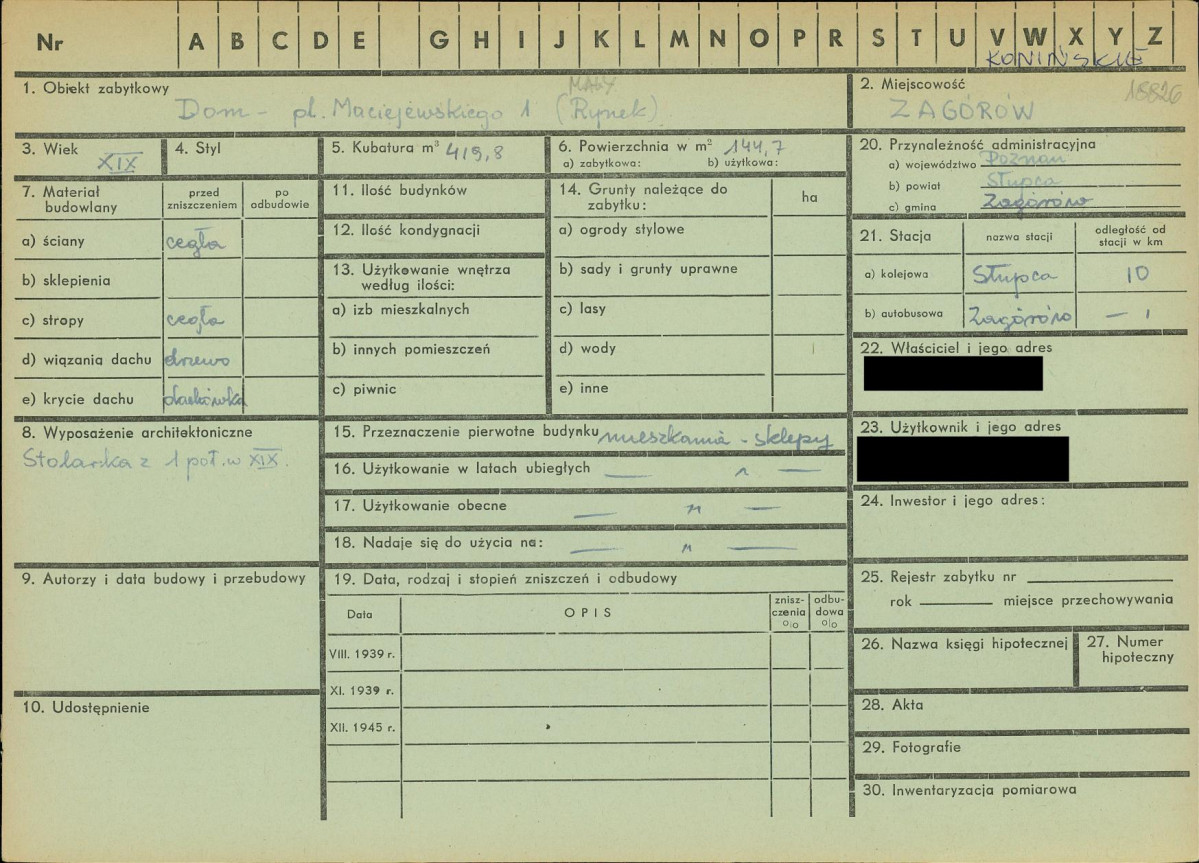 Nr A B C D E G H I J K L M N O P R S T U V W X Y Z
KONIŃSKIE
1. Obiekt zabytkowy
MAŁY
Dom - pl. Maciejewskiego 1 (Rynek)
2. Miejscowość
18826
ZAGÓRÓW
3. Wiek XIX
4. Styl
5. Kubatura m³ 419,8
6. Powierzchnia w m² 144,7
a) zabytkowa: b) użytkowa:
20. Przynależność administracyjna
a) województwo Poznań
b) powiat Słupca
c) gmina Zagórów
7. Materiał budowlany
przed zniszczeniem
po odbudowie
a) ściany cegła
b) sklepienia
c) stropy cegła
d) wiązania dachu drzewo
e) krycie dachu dachówka
11. Ilość budynków
12. Ilość kondygnacji
13. Użytkowanie wnętrza według ilości:
a) izb mieszkalnych
b) innych pomieszczeń
c) piwnic
14. Grunty należące do zabytku:
ha
a) ogrody stylowe
b) sady i grunty uprawne
c) lasy
d) wody
e) inne
21. Stacja
nazwa stacji
odległość od stacji w km
a) kolejowa Słupca 10
b) autobusowa Zagórów — ı
22. Właściciel i jego adres
8. Wyposażenie architektoniczne
Stolarska z 1 poł. w XIX.
15. Przeznaczenie pierwotne budynku mieszkania - sklepy
16. Użytkowanie w latach ubiegłych — " —
17. Użytkowanie obecne — " —
18. Nadaje się do użycia na: — " —
23. Użytkownik i jego adres
24. Inwestor i jego adres:
9. Autorzy i data budowy i przebudowy
19. Data, rodzaj i stopień zniszczeń i odbudowy
Data
OPIS
znisz-
czenia
%
odbu-
dowa
%
VIII. 1939 r.
XI. 1939 r.
XII. 1945 r.
25. Rejestr zabytku nr
rok miejsce przechowywania
26. Nazwa księgi hipotecznej
27. Numer hipoteczny
10. Udostępnienie
28. Akta
29. Fotografie
30. Inwentaryzacja pomiarowa